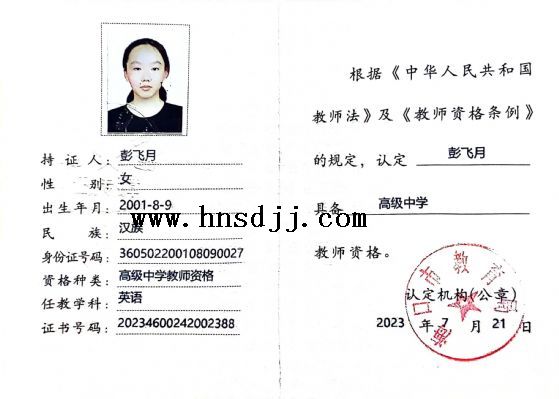 持 证 人：彭飞月
性 别：女
出生年月：2001-8-9
民 族：汉族
身份证号码：360502200108090027
资格种类：高级中学教师资格
任教学科：英语
证书号码：20234600242002388
根据《中华人民共和国
教师法》及《教师资格条例》
的规定，认定 彭飞月
具备 高级中学
教师资格。
认定机构(公章)
2023 年 7 月 21 日
海口市教育局
www.hnsdjj.com